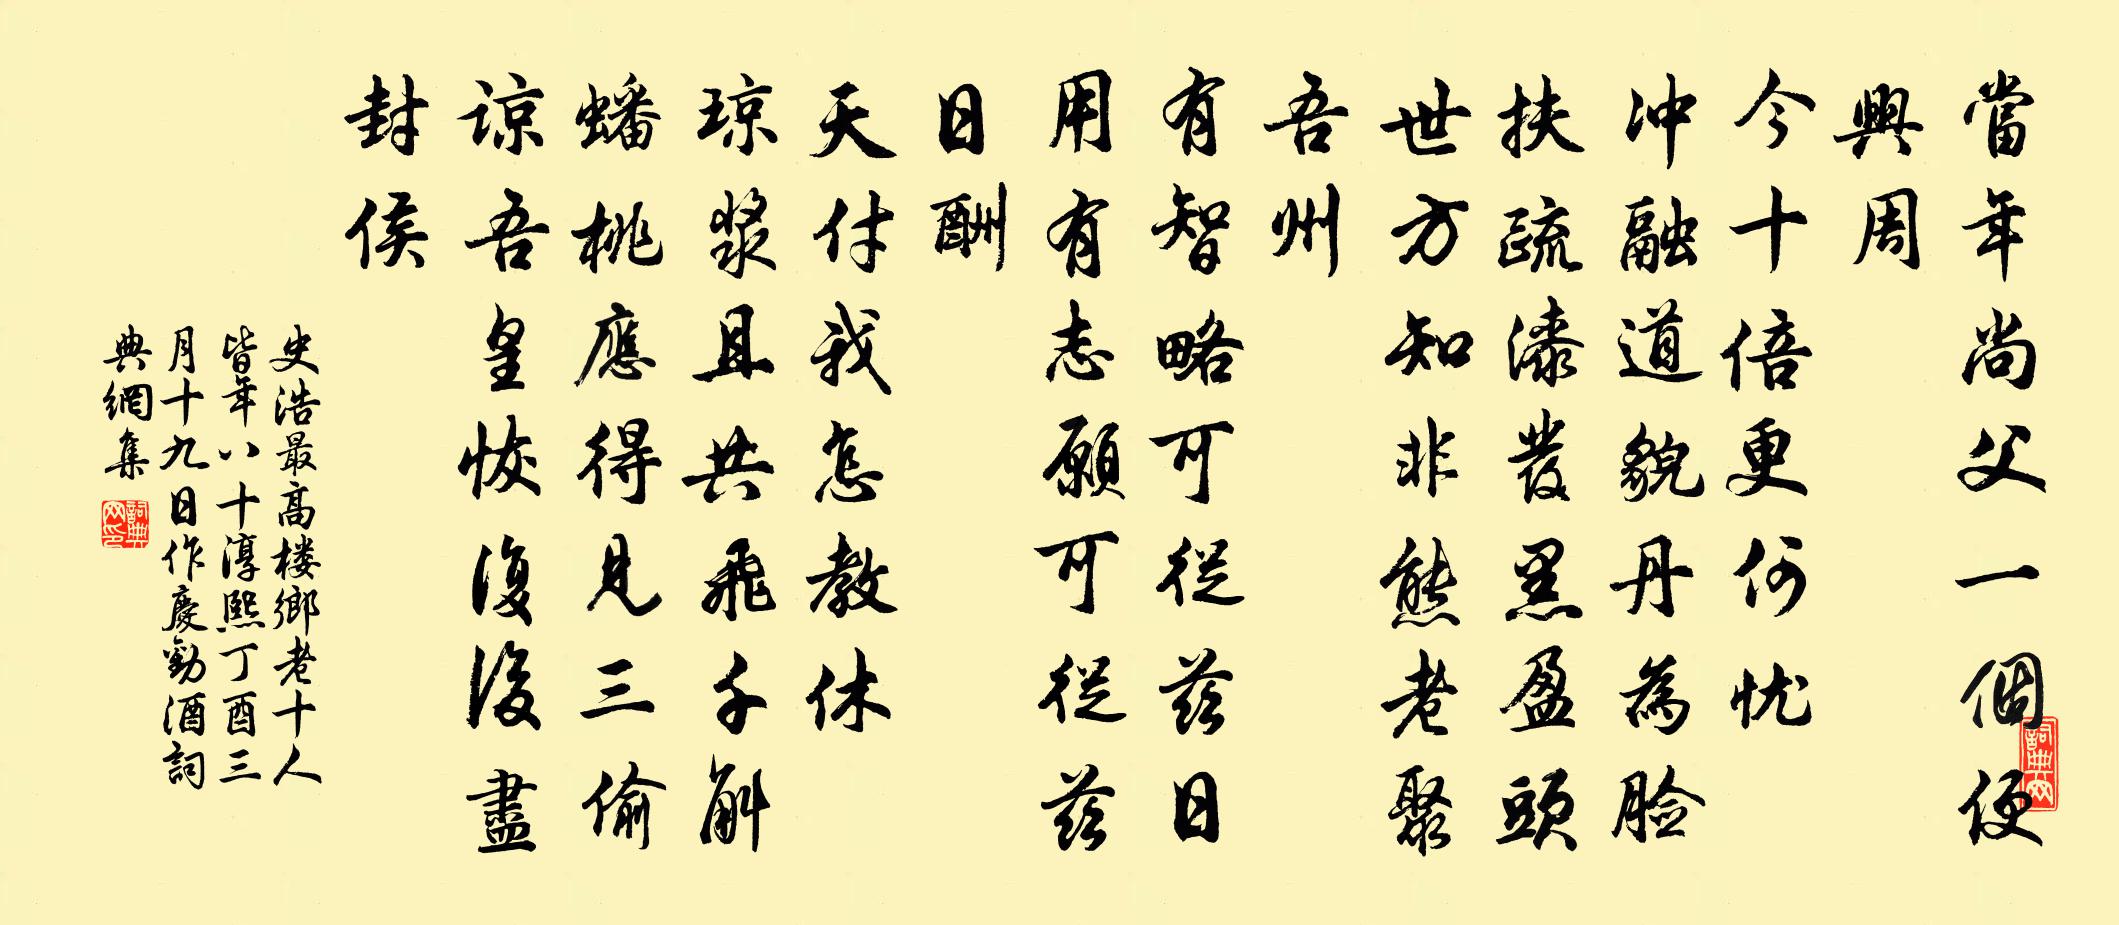 當年尚父一個便
興周
今十倍更何忧
冲融道貌丹為脸
扶疏漆發黑盈頭
世方知非熊老聚
吾州
有智略可從茲日
用有志願可從茲
日酬
天付我怎教休
琼漿且共飛千斛
蟠桃應得見三偷
谅吾皇恢復後盡
封侯
史浩最高楼鄉老十人
皆年八十淳熙丁酉三
月十九日作慶勸酒詞
典網集
詞典网
詞典网印